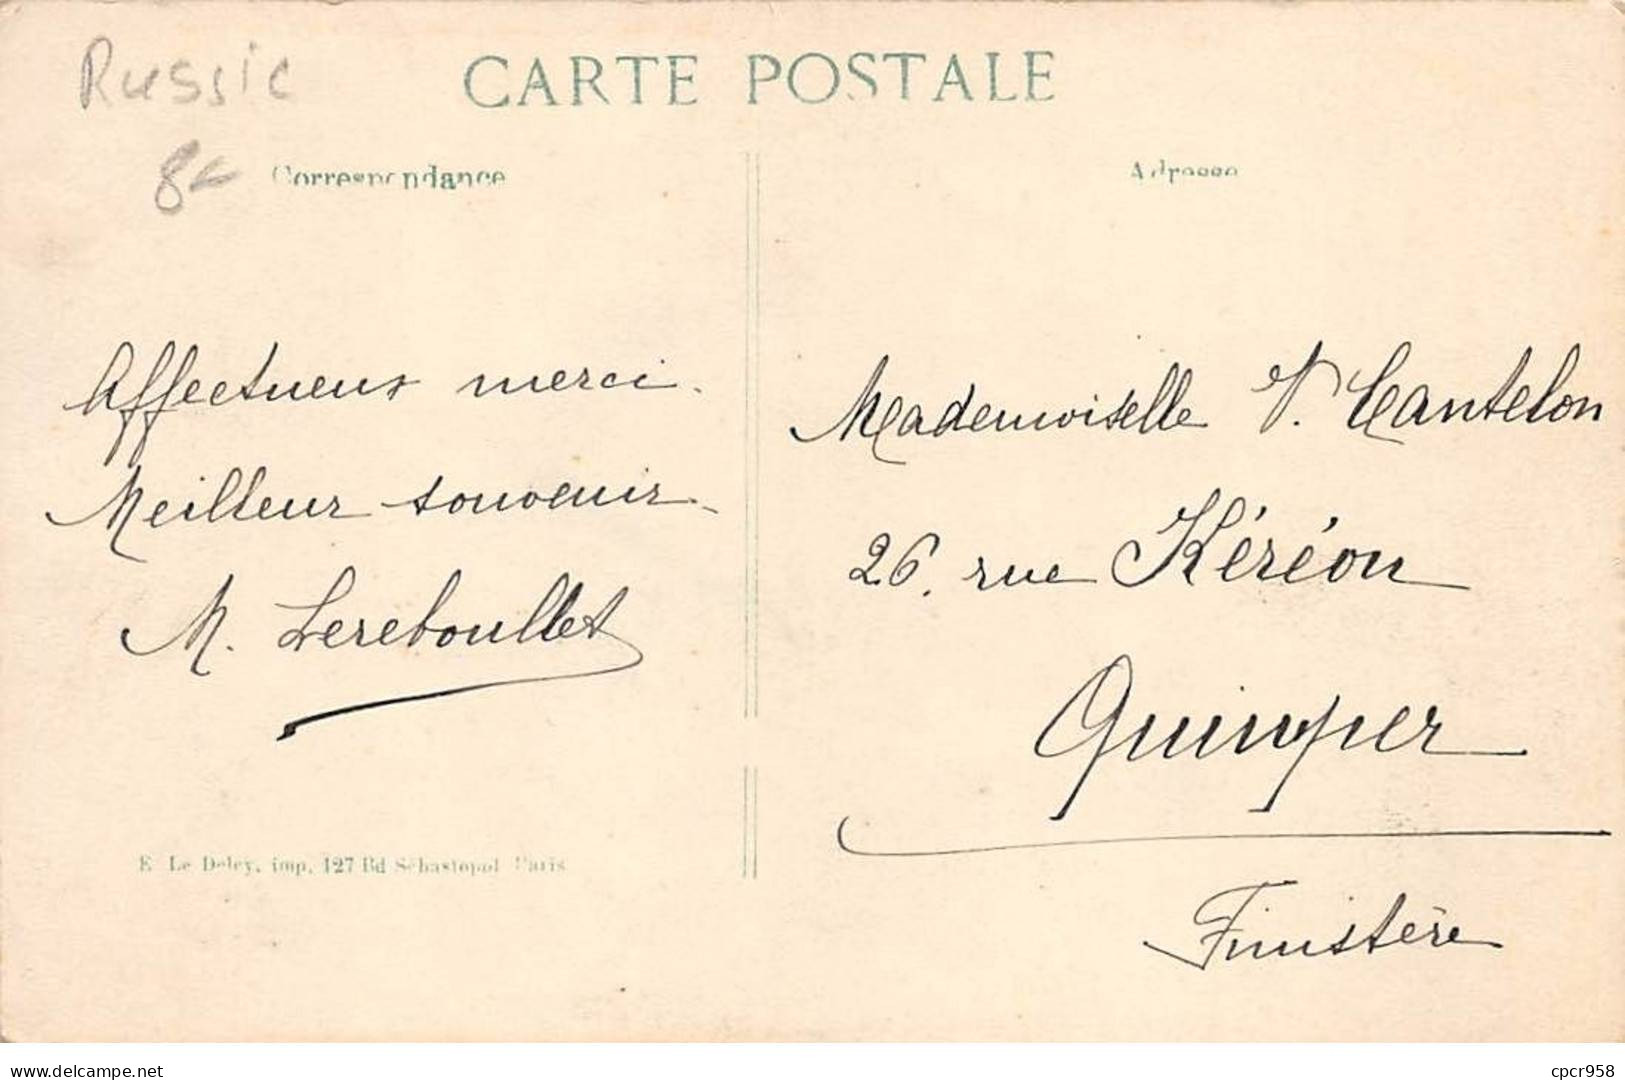 Russie
CARTE POSTALE
8
Correspondance
Adresse
Affectueux merci.
Meilleur souvenir
M. Lereboullet
Mademoiselle V. Cantelon
26, rue Kéréon
Quimper
Finistère
E. Le Deley, imp, 127 Bd Sébastopol Paris
www.delcampe.net
cpcr958